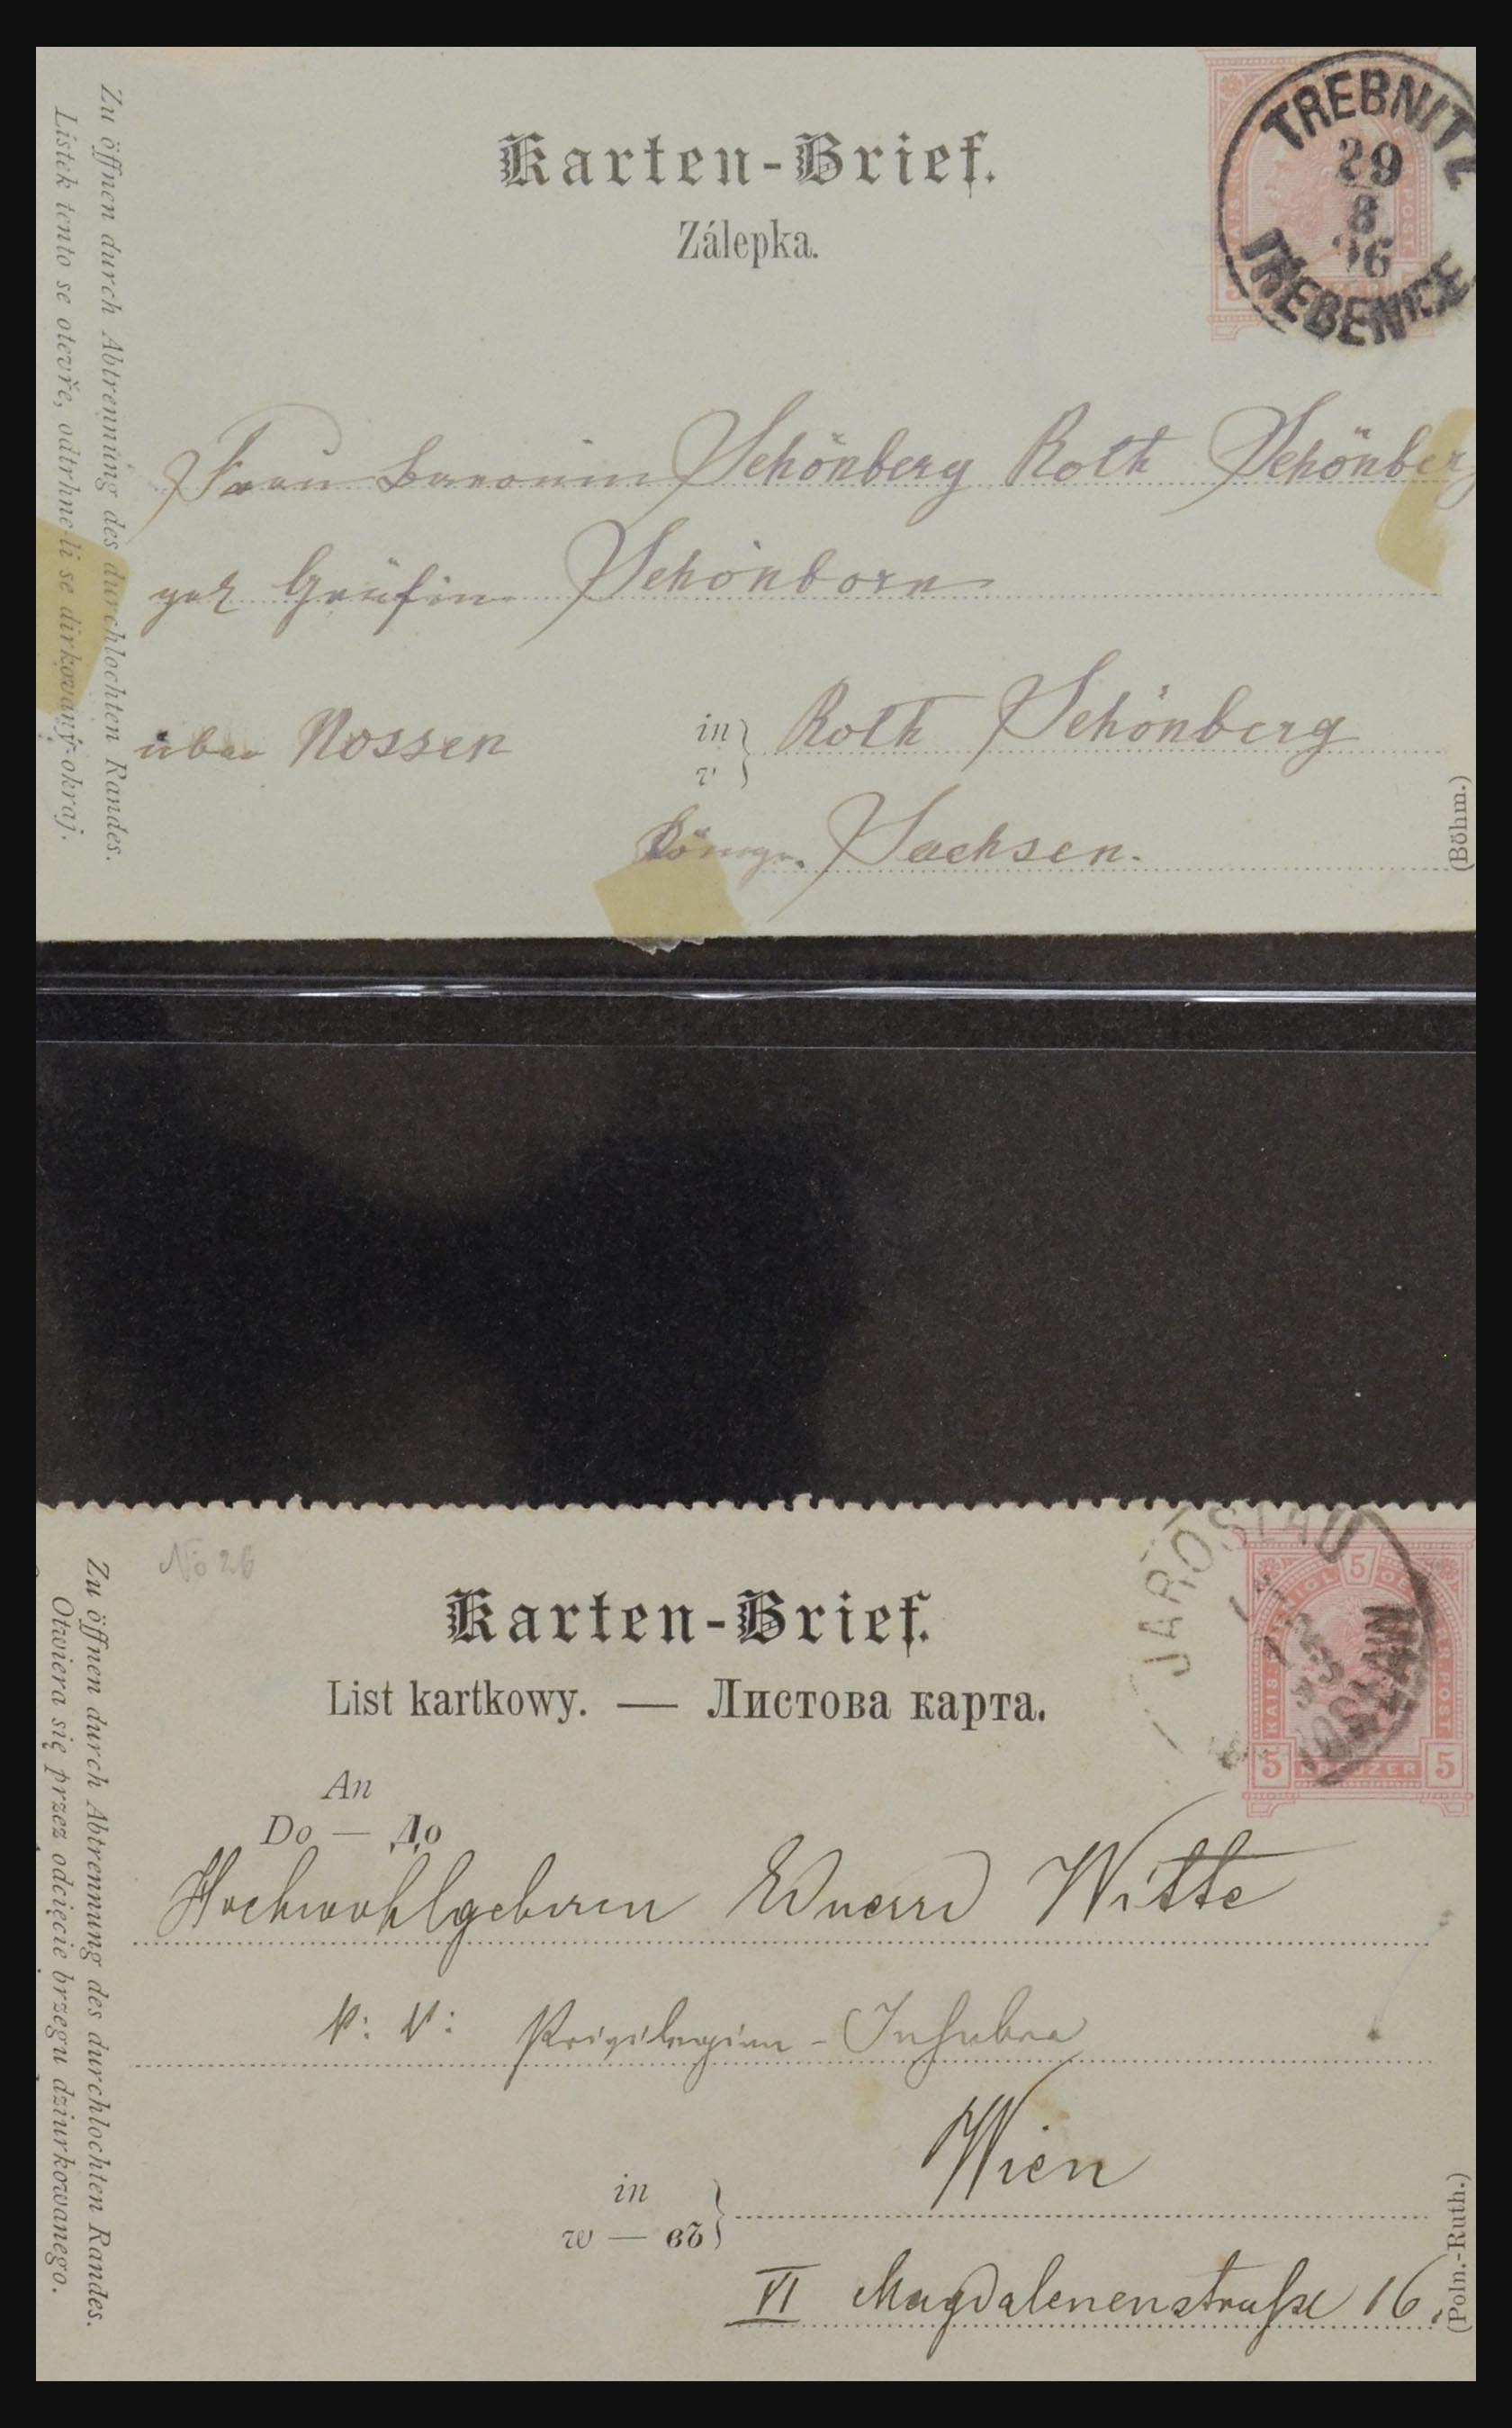 Karten-Brief.
Zálepka.
TREBNITZ
29
8
96
TŘEBENICE
Zu öffnen durch Abtrennung des durchlochten Randes.
Lístek tento se otevře, odtrhne-li se dirkovaný okraj.
Frau Baronin Schönberg Roth Schönberg
geb Gräfin Schönborn
über Nossen
in
v
Roth Schönberg
Königr. Sachsen.
(Böhm.)
No 26
Karten-Brief.
List kartkowy. — Листова карта.
JAROSLAU
5
5 KREUZER 5
Zu öffnen durch Abtrennung des durchlochten Randes.
Otwiera się przez odcięcie brzegu dziurkowanego.
An
Do — До
Hochwohlgeboren Eduard Witte
k: k: Privilegien-Inhaber
Wien
in
w — въ
VI Magdalenenstraße 16.
(Poln.-Ruth.)